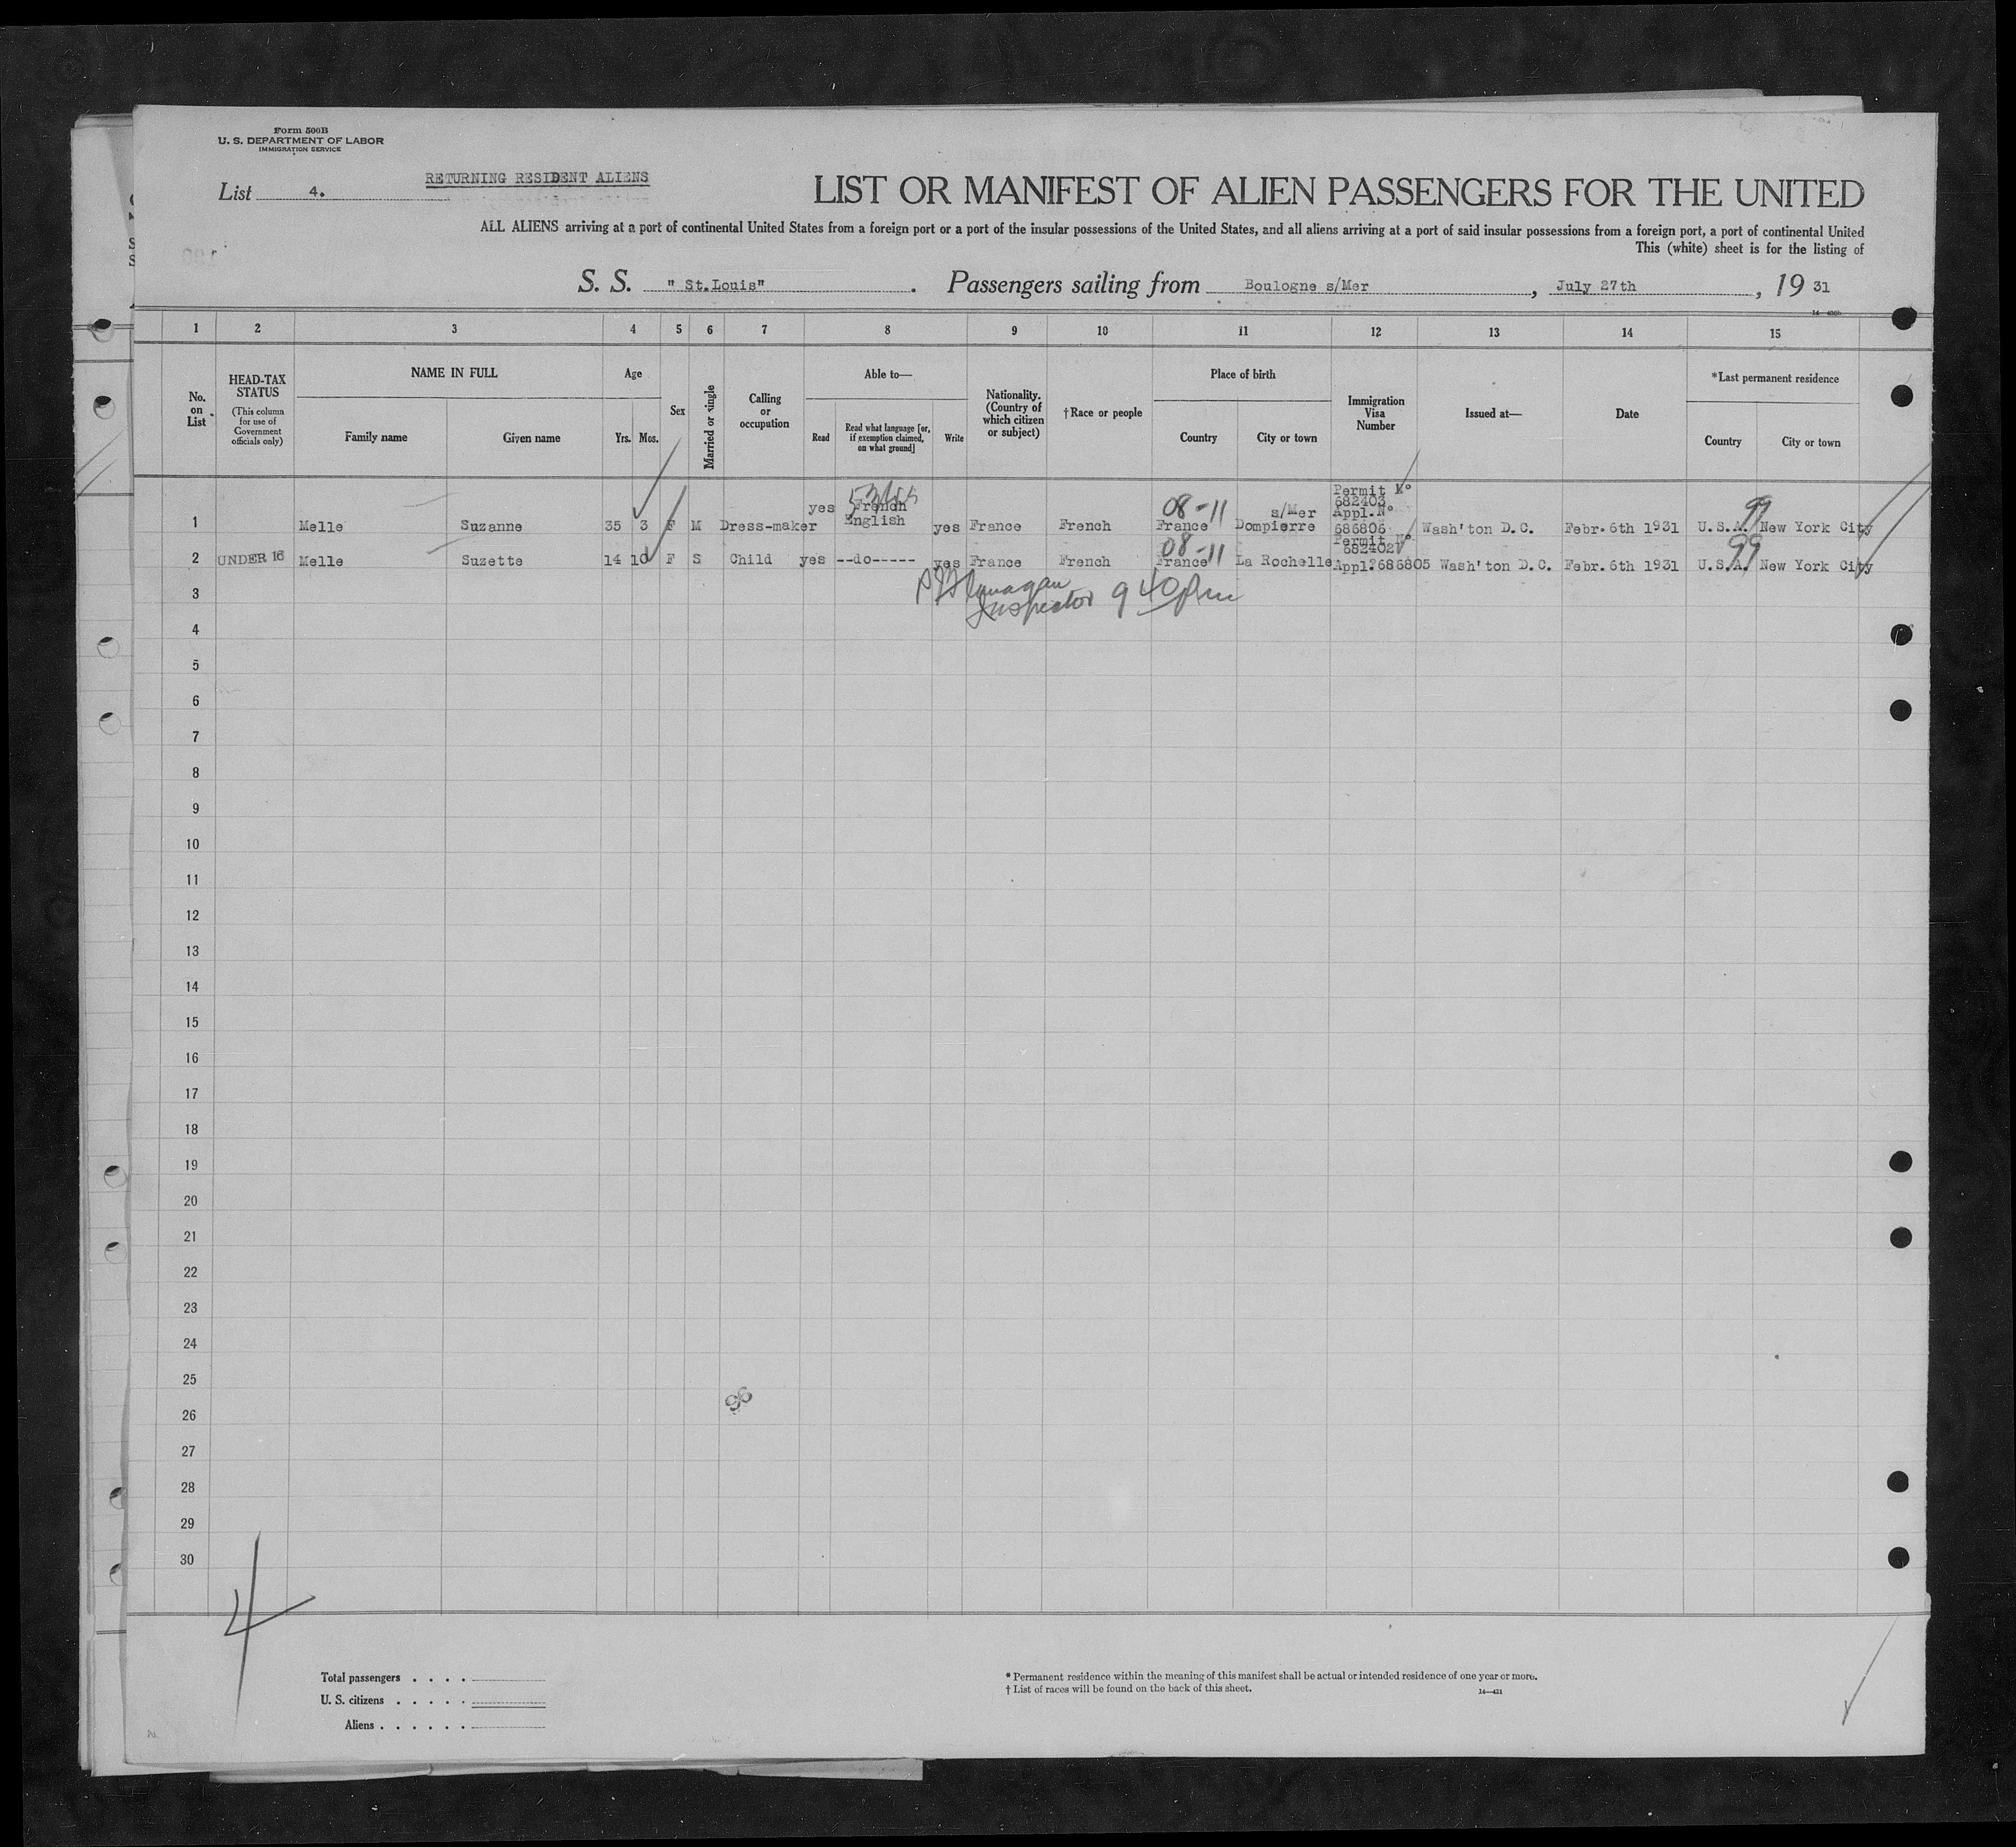 Form 500B
U. S. DEPARTMENT OF LABOR
IMMIGRATION SERVICE
List 4.
RETURNING RESIDENT ALIENS
LIST OR MANIFEST OF ALIEN PASSENGERS FOR THE UNITED
ALL ALIENS arriving at a port of continental United States from a foreign port or a port of the insular possessions of the United States, and all aliens arriving at a port of said insular possessions from a foreign port, a port of continental United
This (white) sheet is for the listing of
S. S. " St.Louis" . Passengers sailing from Boulogne s/Mer , July 27th , 19 31
1 2 3 4 5 6 7 8 9 10 11 12 13 14 15
No. on List
HEAD-TAX STATUS
(This column for use of Government officials only)
NAME IN FULL
Family name
Given name
Age
Yrs.
Mos.
Sex
Married or single
Calling or occupation
Able to—
Read
Read what language [or, if exemption claimed, on what ground]
Write
Nationality. (Country of which citizen or subject)
†Race or people
Place of birth
Country
City or town
Immigration Visa Number
Issued at—
Date
*Last permanent residence
Country
City or town
1 Melle Suzanne 35 3 F M Dress-maker yes French English yes France French 08-11 France s/Mer Dompierre Permit N° 682403 Appl.N° 686806 Wash'ton D.C. Febr.6th 1931 99 U.S.A. New York City
2 UNDER 16 Melle Suzette 14 10 F S Child yes --do----- yes France French 08-11 France La Rochelle Permit N° 682402 Appl.686805 Wash'ton D.C. Febr.6th 1931 99 U.S.A. New York City
3 Inspector 9 40 Pm
4
5
6
7
8
9
10
11
12
13
14
15
16
17
18
19
20
21
22
23
24
25
26
27
28
29
30
96
4
Total passengers . . . .
U. S. citizens . . . . .
Aliens . . . . . .
* Permanent residence within the meaning of this manifest shall be actual or intended residence of one year or more.
† List of races will be found on the back of this sheet.
14—421